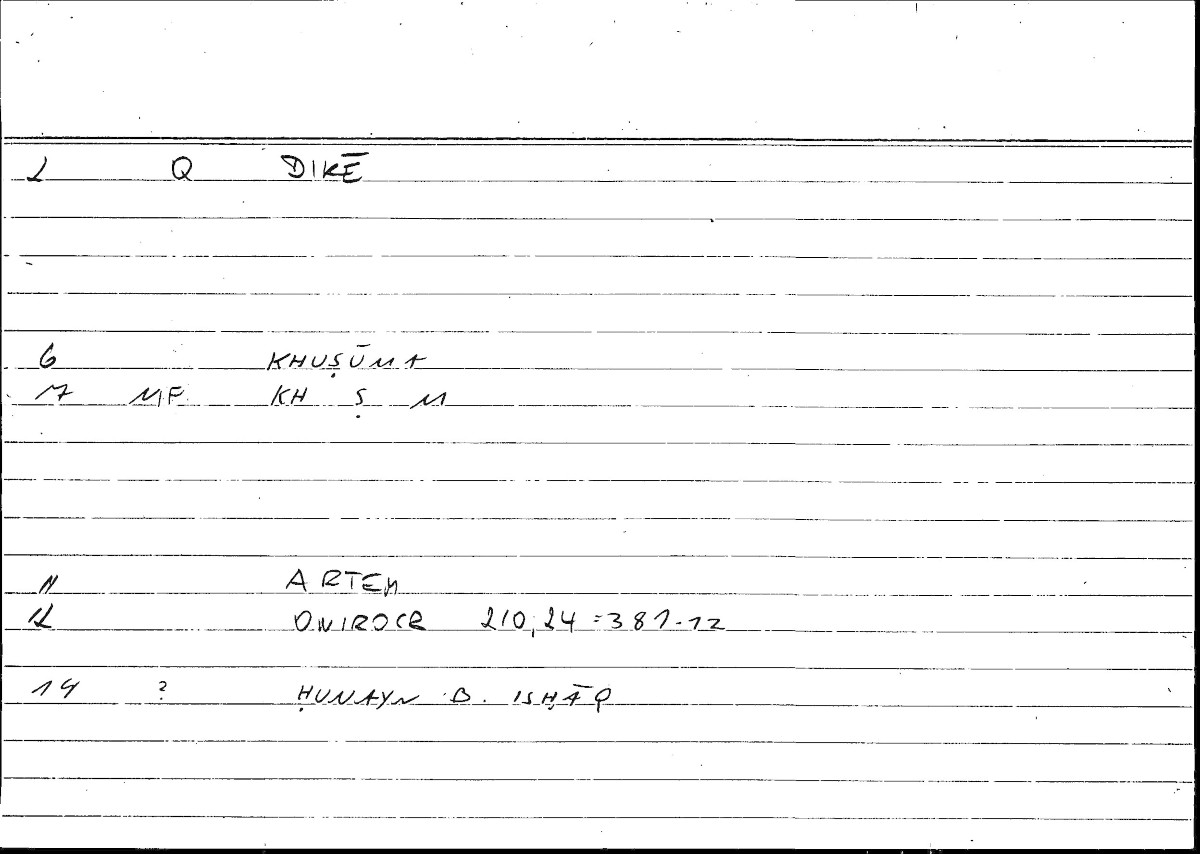 2 Q DIKĒ
6 KHUṢŪMA
7 MF KH Ṣ M
11 ARTEM
12 ONIROCR 210,24=381.12
14 ? ḤUNAYN B. ISḤĀQ